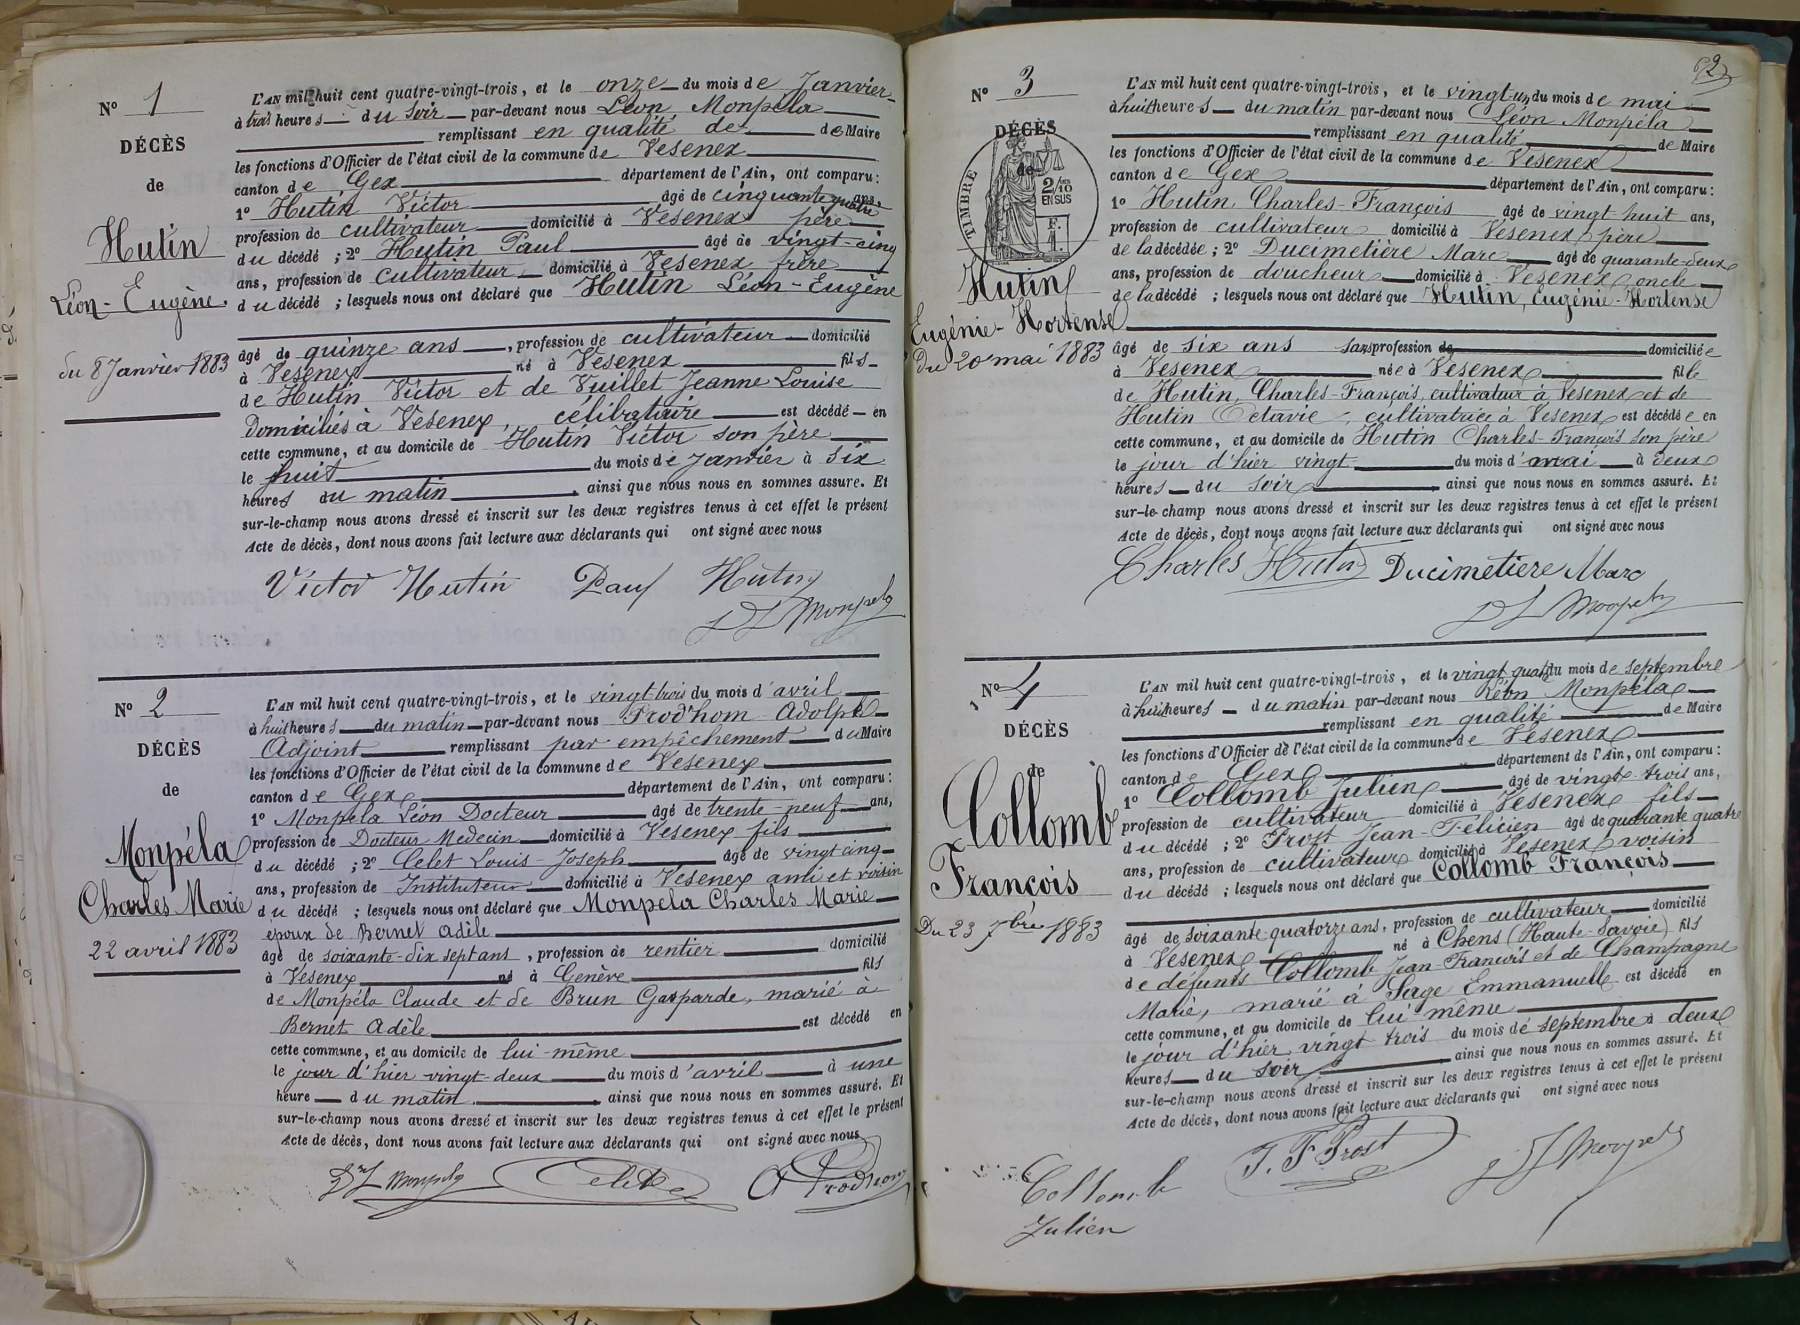 N° 1
DÉCÈS
de
Hutin
Léon-Eugène
du 8 Janvier 1883
L'AN mil huit cent quatre-vingt-trois, et le onze du mois de Janvier
à trois heures du soir par-devant nous Léon Monpéla
remplissant en qualité de de Maire
les fonctions d'Officier de l'état civil de la commune de Vesenex
canton de Gex département de l'Ain, ont comparu :
1° Hutin Victor âgé de cinquante quatre ans,
profession de cultivateur domicilié à Vesenex père
du décédé ; 2° Hutin Paul âgé de vingt-cinq
ans, profession de cultivateur domicilié à Vesenex frère
du décédé ; lesquels nous ont déclaré que Hutin Léon-Eugène
âgé de quinze ans, profession de cultivateur domicilié
à Vesenex né à Vesenex fils
de Hutin Victor et de Vuillet Jeanne Louise
Domiciliés à Vesenex, célibataire est décédé en
cette commune, et au domicile de Hutin Victor son père
le huit du mois de Janvier à six
heures du matin, ainsi que nous nous en sommes assuré. Et
sur-le-champ nous avons dressé et inscrit sur les deux registres tenus à cet effet le présent
Acte de décès, dont nous avons fait lecture aux déclarants qui ont signé avec nous
Victor Hutin Paul Hutin
Dr L Monpéla
N° 2
DÉCÈS
de
Monpéla
Charles Marie
22 avril 1883
L'AN mil huit cent quatre-vingt-trois, et le vingt trois du mois d'avril
à huit heures du matin par-devant nous Prod'hom Adolphe
Adjoint remplissant par empêchement du Maire
les fonctions d'Officier de l'état civil de la commune de Vesenex
canton de Gex département de l'Ain, ont comparu :
1° Monpéla Léon Docteur âgé de trente-neuf ans,
profession de Docteur Medecin domicilié à Vesenex fils
du décédé ; 2° Celet Louis-Joseph âgé de vingt cinq
ans, profession de Instituteur domicilié à Vesenex ami et voisin
du décédé ; lesquels nous ont déclaré que Monpela Charles Marie
epoux de Bernet Adèle
âgé de soixante-dix sept ans, profession de rentier domicilié
à Vesenex né à Genève fils
de Monpéla Claude et de Brun Gasparde, marié à
Bernet Adèle est décédé en
cette commune, et au domicile de lui-même
le jour d'hier vingt-deux du mois d'avril à une
heure du matin, ainsi que nous nous en sommes assuré. Et
sur-le-champ nous avons dressé et inscrit sur les deux registres tenus à cet effet le présent
Acte de décès, dont nous avons fait lecture aux déclarants qui ont signé avec nous
Dr L Monpéla Celet A Prodhom
N° 3
DÉCÈS
de
TIMBRE
2/10
EN SUS
F.
Hutin
Eugénie-Hortense
Du 20 mai 1883
L'AN mil huit cent quatre-vingt-trois, et le vingt-un du mois de mai
à huit heures du matin par-devant nous Léon Monpéla
remplissant en qualité de Maire
les fonctions d'Officier de l'état civil de la commune de Vesenex
canton de Gex département de l'Ain, ont comparu :
1° Hutin, Charles-François âgé de vingt-huit ans,
profession de cultivateur domicilié à Vesenex père
de la décédée ; 2° Ducimetière Marc âgé de quarante-deux
ans, profession de doucheur domicilié à Vesenex, oncle
de la décédé ; lesquels nous ont déclaré que Hutin, Eugénie-Hortense
âgé de six ans sans profession de domiciliée
à Vesenex née à Vesenex fille
de Hutin, Charles-François, cultivateur à Vesenex et de
Hutin Octavie, cultivatrice à Vesenex est décédée en
cette commune, et au domicile de Hutin Charles-François son père
le jour d'hier vingt du mois d'mai à deux
heures du soir, ainsi que nous nous en sommes assuré. Et
sur-le-champ nous avons dressé et inscrit sur les deux registres tenus à cet effet le présent
Acte de décès, dont nous avons fait lecture aux déclarants qui ont signé avec nous
Charles Hutin Ducimetiere Marc
Dr L Monpéla
N° 4
DÉCÈS
de
Collomb
François
Du 23 7bre 1883
L'AN mil huit cent quatre-vingt-trois, et le vingt quatre du mois de septembre
à huit heures du matin par-devant nous Léon Monpéla
remplissant en qualité de Maire
les fonctions d'Officier de l'état civil de la commune de Vesenex
canton de Gex département de l'Ain, ont comparu :
1° Collomb Julien âgé de vingt-trois ans,
profession de cultivateur domicilié à Vesenex fils
du décédé ; 2° Prost Jean-Félicien âgé de quarante quatre
ans, profession de cultivateur domicilié à Vesenex voisin
du décédé ; lesquels nous ont déclaré que Collomb François
âgé de soixante-quatorze ans, profession de cultivateur domicilié
à Vesenex né à Chens (Haute-Savoie) fils
de défunts Collomb Jean-François et de Champagne
Marie, marié à Sage Emmanuelle est décédé en
cette commune, et au domicile de lui même
le jour d'hier vingt trois du mois de septembre à deux
heures du soir, ainsi que nous nous en sommes assuré. Et
sur-le-champ nous avons dressé et inscrit sur les deux registres tenus à cet effet le présent
Acte de décès, dont nous avons fait lecture aux déclarants qui ont signé avec nous
Collomb J. F Prost Dr L Monpéla
Julien